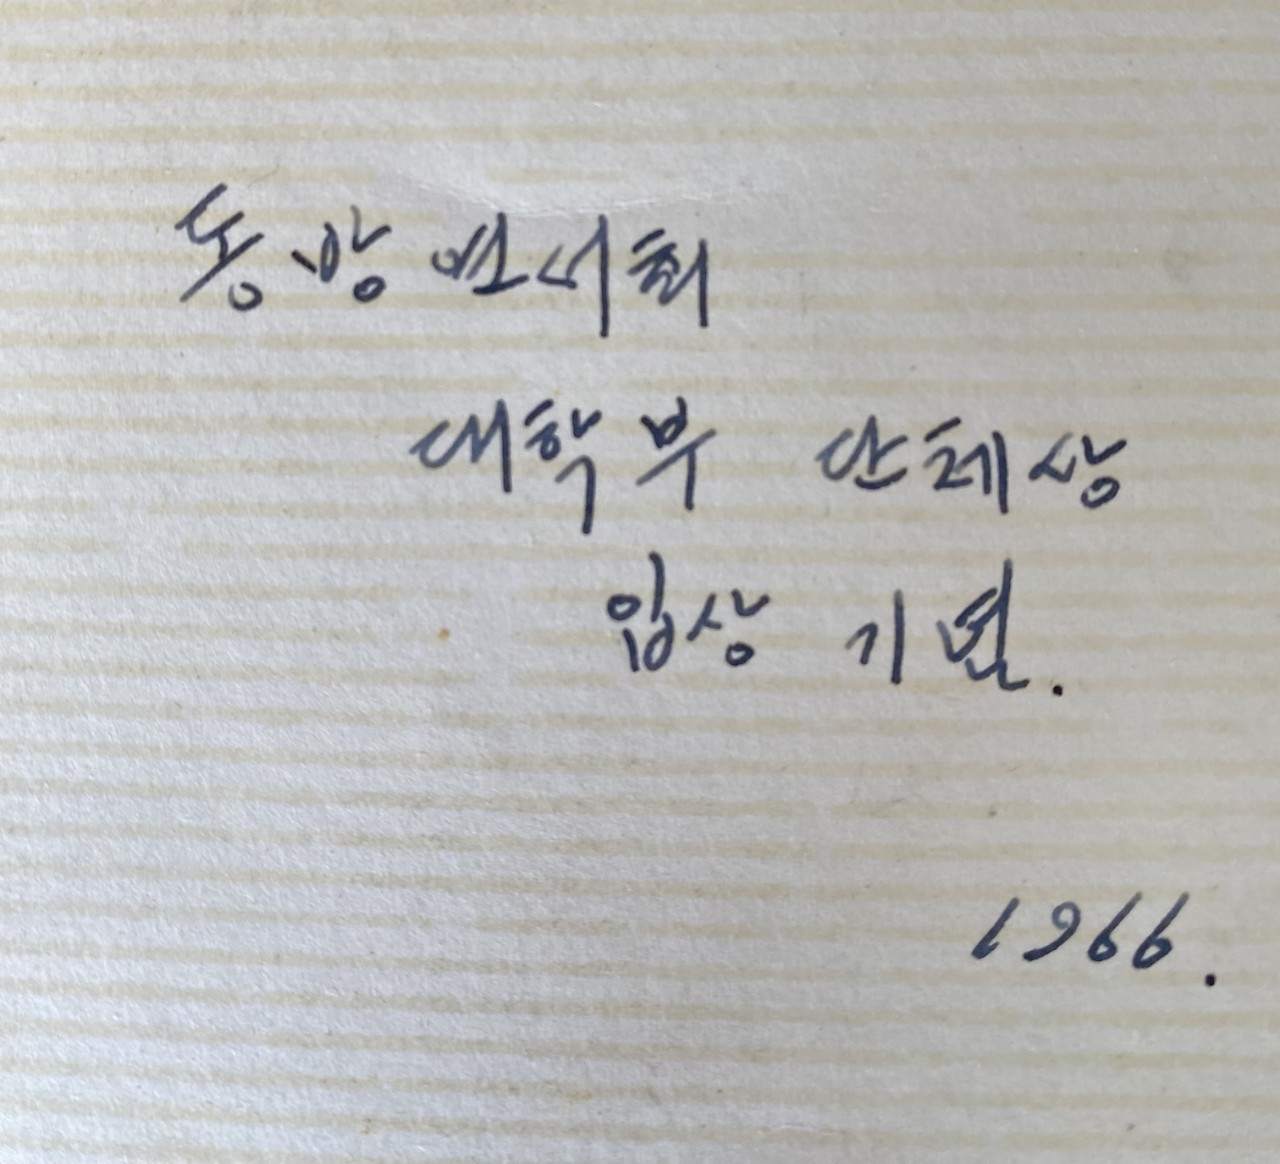 동방연서회
대학부 단체상
입상 기념.
1966.